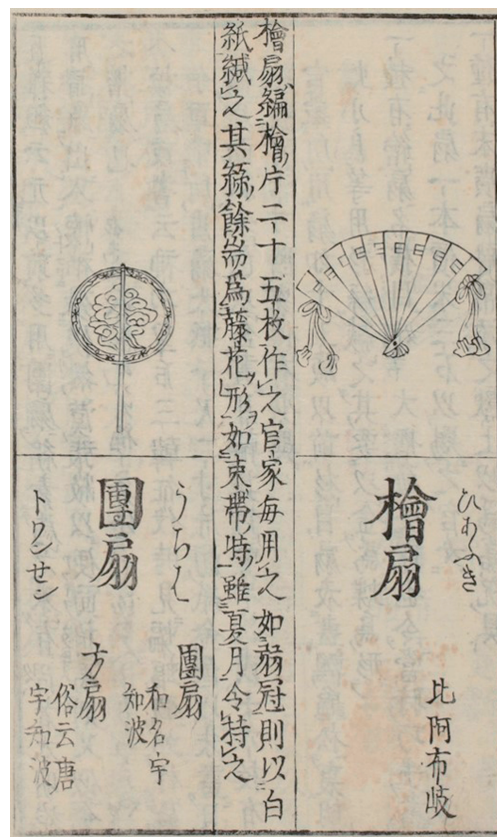 檜扇
ひあふき
比阿布岐
檜扇編檜片二十五枚作之官家毎用之如翁冠則以白
紙緘之其餘為藤花形如束帶時雖夏月令持之
團扇
うちは
トワンセン
團扇
和名宇
知波
方扇
俗云唐
宇知波